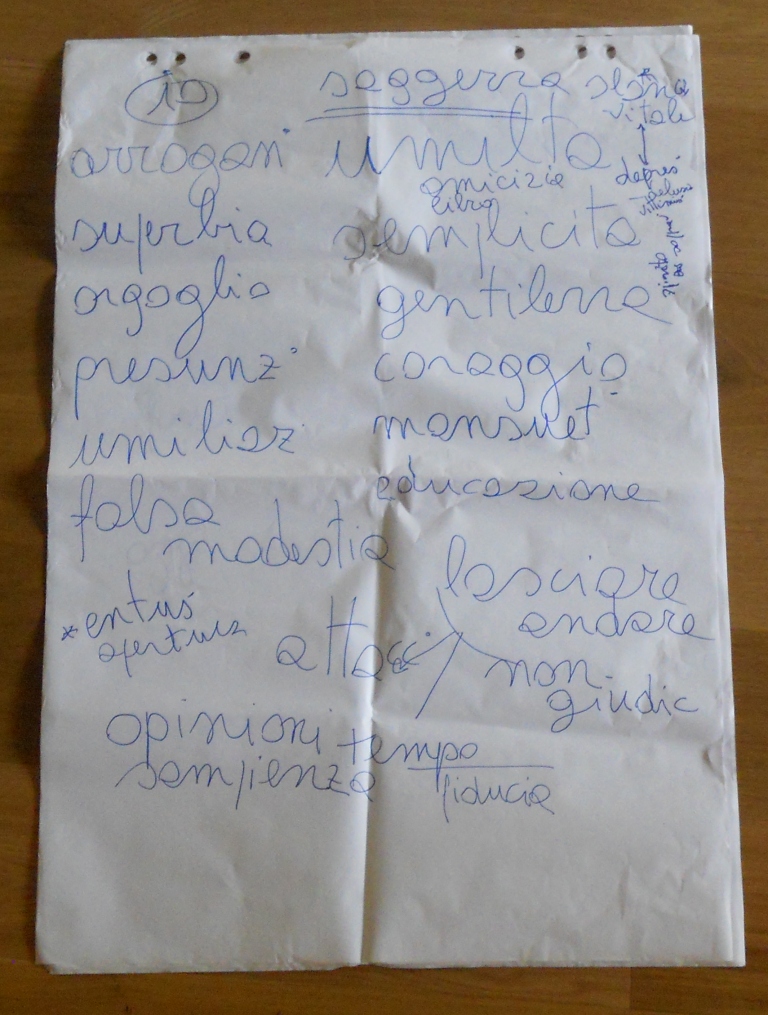 io saggezza slancio
vitale
arrogan umiltà
amicizia depres
libro
superbia semplicità
orgoglio gentilezza
presunz coraggio
umiliaz mansuet
educazione
falsa
modestia
lasciare
andare
* entus
apertura
attac
non
giudic
opinioni tempo
fiducia